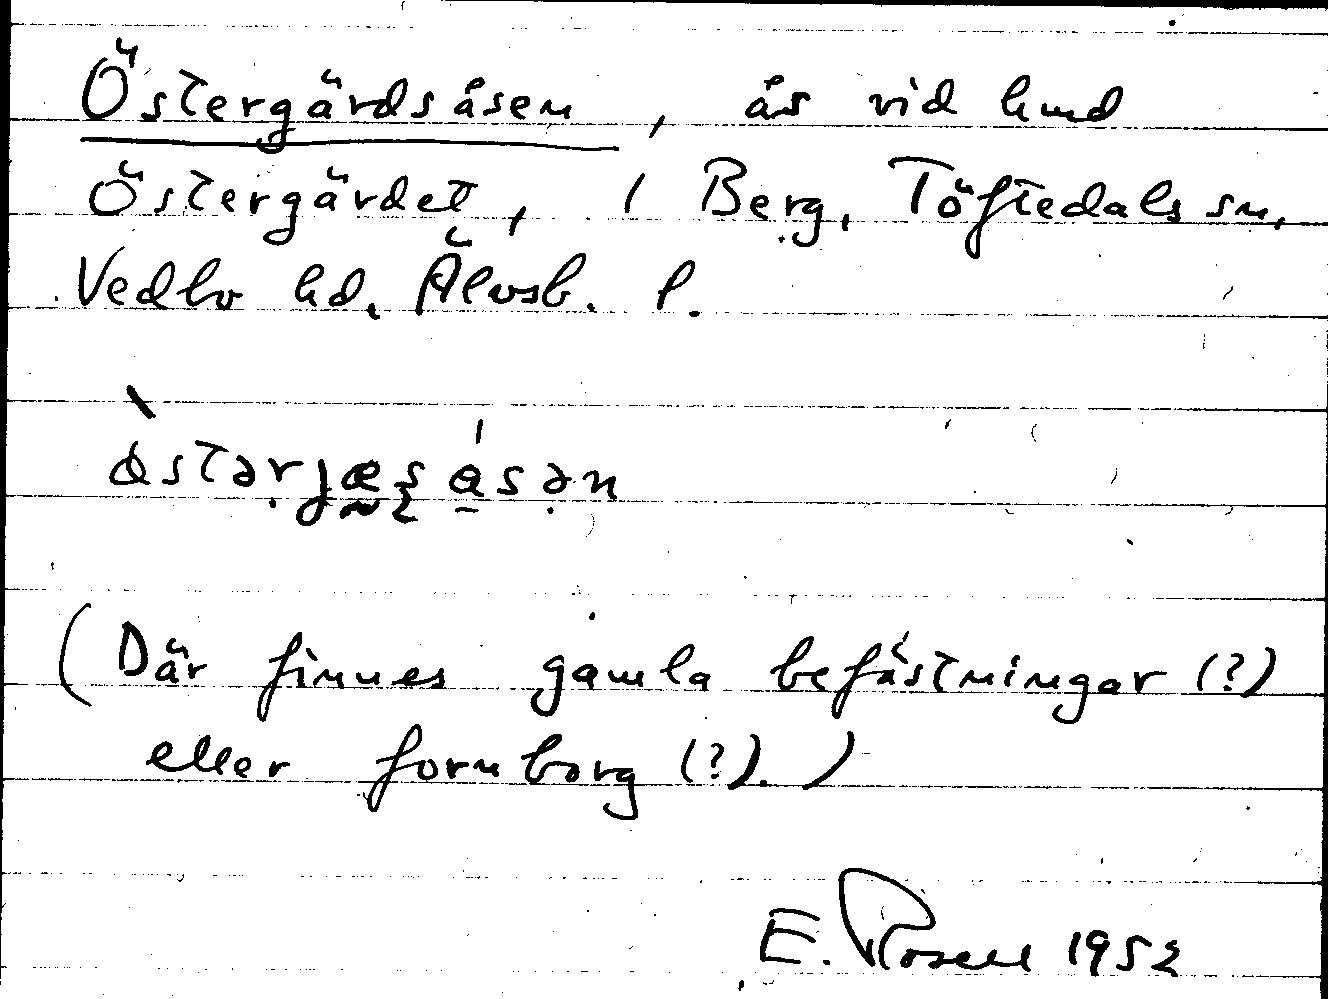 Östergärdsåsen, ås vid lund
Östergärdet, i Berg, Töftedals sn,
Vedbo hd, Älvsb. l.
östərjæsåsən
(Där finnes gamla befästningar (?)
eller fornborg (?).)
E. Rosell 1952